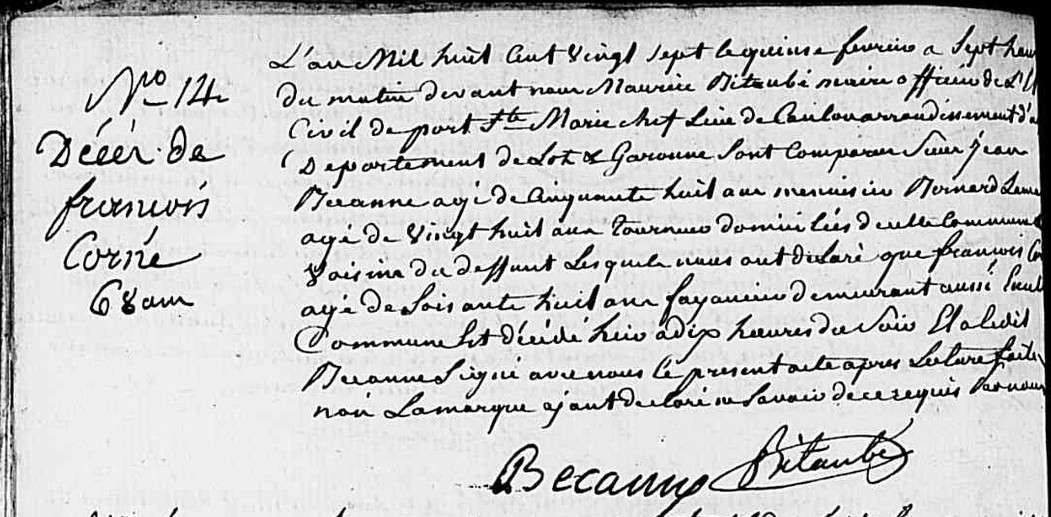 N.o 14
Décér de
françois
Corné
68 ans
L'an Mil huit Cent Vingt sept le quinse fevrier a Sept heu
du matin devant nous Maurice Bitaubé maire officier de L'
Civil de port Ste Marie chef Lieu de Canton arrondissement d'a
Departement de Lot & Garonne Sont Comparus Sieur jean
Becanne agé de Cinquante huit ans menuisier Bernard Lama
agé de Vingt huit ans Tourneur domiciliés de cette Commune
Voisins du deffunt Lesquels nous ont déclaré que françois Co
agé de Soisante huit ans fayancier demeurant aussi
Commune Est décédé hier a dix heures du Soir Et a ledit
Becanne Signé avec nous le present acte apres Lecture faite
non Lamarque ajant declaré ne Savoir de ce requis Par nous
Becanne Bitaubé